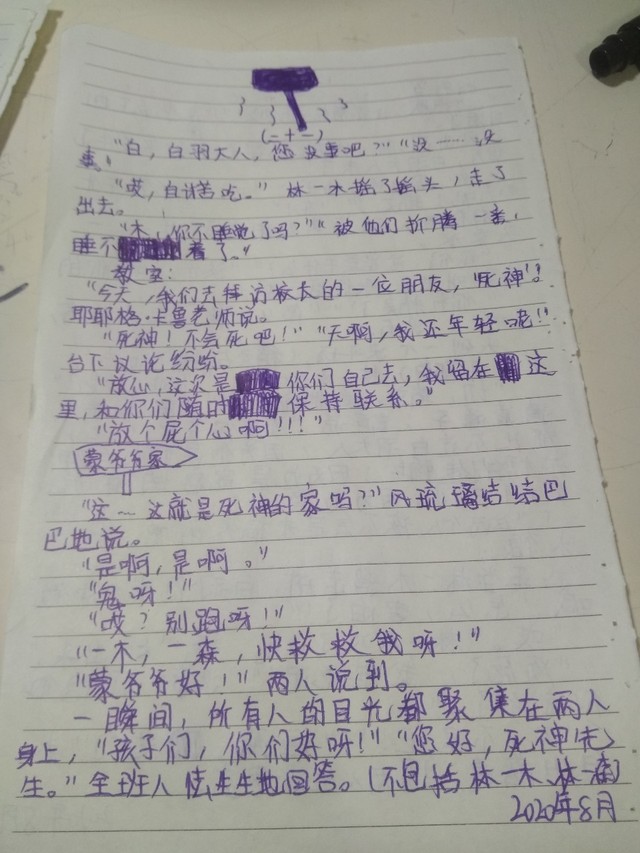 (－＋－)
"白，白羽大人，您没事吧？""没……没
事！
"哎，自讨苦吃。"林一木摇了摇头，走了
出去。
"木，你不睡觉了吗？""被他们折腾一番，
睡不着了。"
教室：
"今天，我们去拜访校长的一位朋友，死神"！
耶耶格·卡兽老师说。
"死神！不会死吧！""天啊，我还年轻呢！"
台下议论纷纷。
"放心，这次是你们自己去，我留在这
里，和你们随时保持联系。"
"放个屁个心啊！！！"
蒙爷爷家
"这～这就是死神的家吗？"风琉璃结结巴
巴地说。
"是啊，是啊。"
"鬼呀！"
"哎？别跑呀！"
"一木，一森，快救救我呀！"
"蒙爷爷好！"两人说到。
一瞬间，所有人的目光都聚集在两人
身上，"孩子们，你们好呀！""您好，死神先
生。"全班人怯生生地回答。（不包括林一木、林一森）
2020年8月